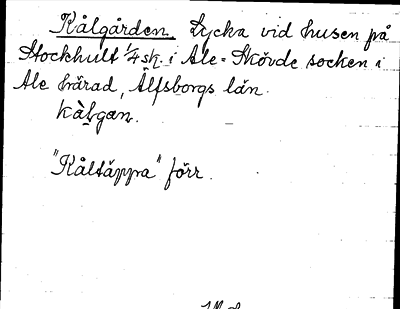 Kålgården. Lycka vid husen på
Stockhult 1/4 sk. i Ale-Skövde socken i
Ale härad, Älfsborgs län.
kàl̥gan.
"Kåltäppa" förr.